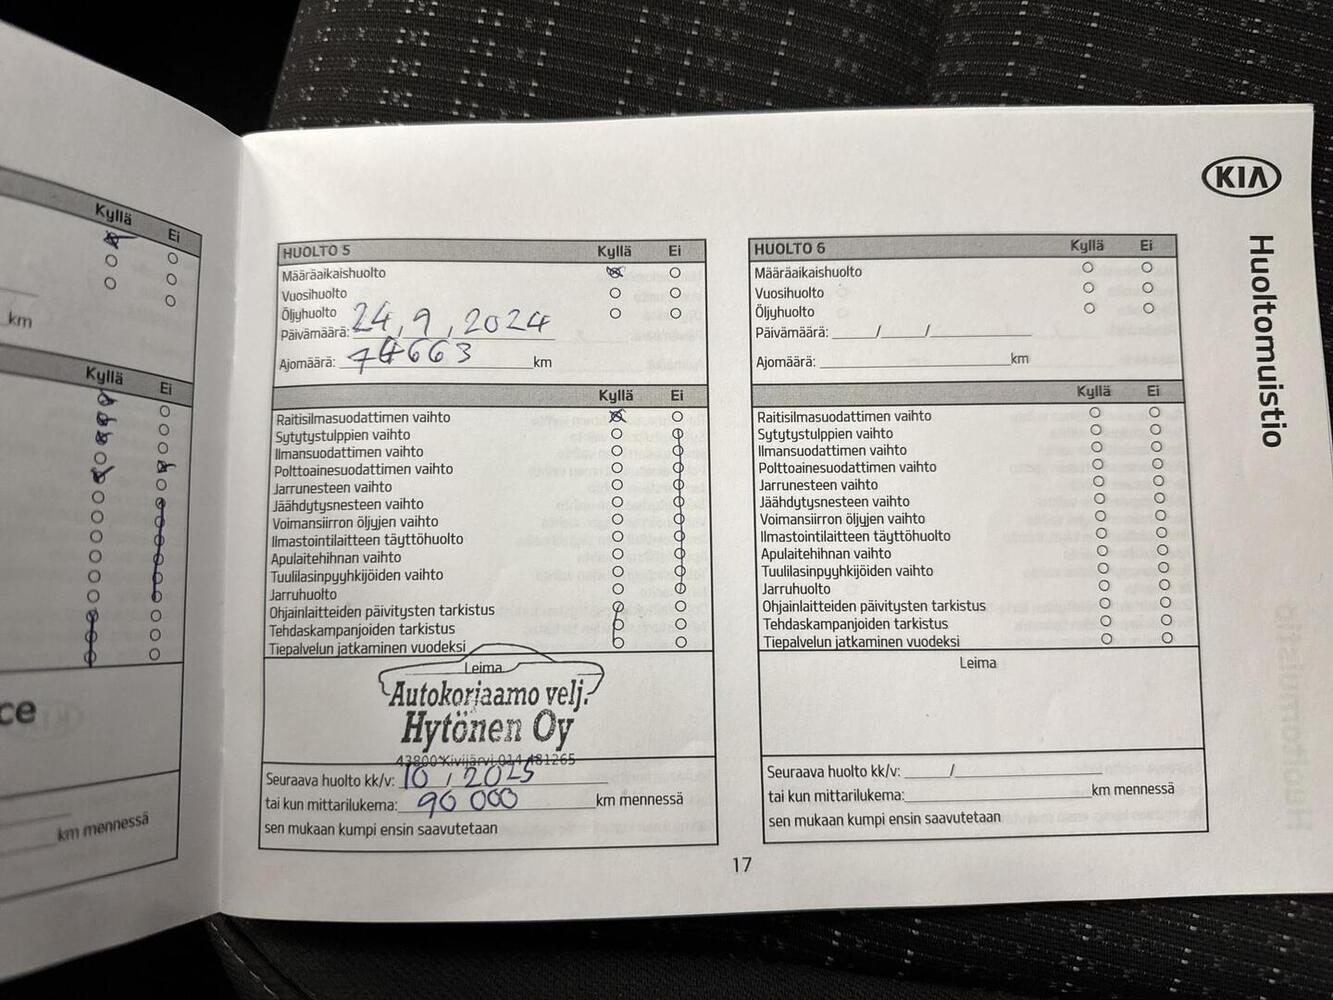 Kyllä Ei
km
Kyllä Ei
ce
km mennessä
HUOLTO 5 Kyllä Ei
Määräaikaishuolto
Vuosihuolto
Öljyhuolto
Päivämäärä: 24, 9, 2024
Ajomäärä: 74663 km
Kyllä Ei
Raitisilmasuodattimen vaihto
Sytytystulppien vaihto
Ilmansuodattimen vaihto
Polttoainesuodattimen vaihto
Jarrunesteen vaihto
Jäähdytysnesteen vaihto
Voimansiirron öljyjen vaihto
Ilmastointilaitteen täyttöhuolto
Apulaitehihnan vaihto
Tuulilasinpyyhkijöiden vaihto
Jarruhuolto
Ohjainlaitteiden päivitysten tarkistus
Tehdaskampanjoiden tarkistus
Tiepalvelun jatkaminen vuodeksi
Leima
Autokorjaamo velj.
Hytönen Oy
43800 Kivijärvi 014 481265
Seuraava huolto kk/v: 10 / 2025
tai kun mittarilukema: 90 000 km mennessä
sen mukaan kumpi ensin saavutetaan
HUOLTO 6 Kyllä Ei
Määräaikaishuolto
Vuosihuolto
Öljyhuolto
Päivämäärä: ____/____/____
Ajomäärä: ____ km
Kyllä Ei
Raitisilmasuodattimen vaihto
Sytytystulppien vaihto
Ilmansuodattimen vaihto
Polttoainesuodattimen vaihto
Jarrunesteen vaihto
Jäähdytysnesteen vaihto
Voimansiirron öljyjen vaihto
Ilmastointilaitteen täyttöhuolto
Apulaitehihnan vaihto
Tuulilasinpyyhkijöiden vaihto
Jarruhuolto
Ohjainlaitteiden päivitysten tarkistus
Tehdaskampanjoiden tarkistus
Tiepalvelun jatkaminen vuodeksi
Leima
Seuraava huolto kk/v: ____/____
tai kun mittarilukema: ____ km mennessä
sen mukaan kumpi ensin saavutetaan
17
KIA
Huoltomuistio